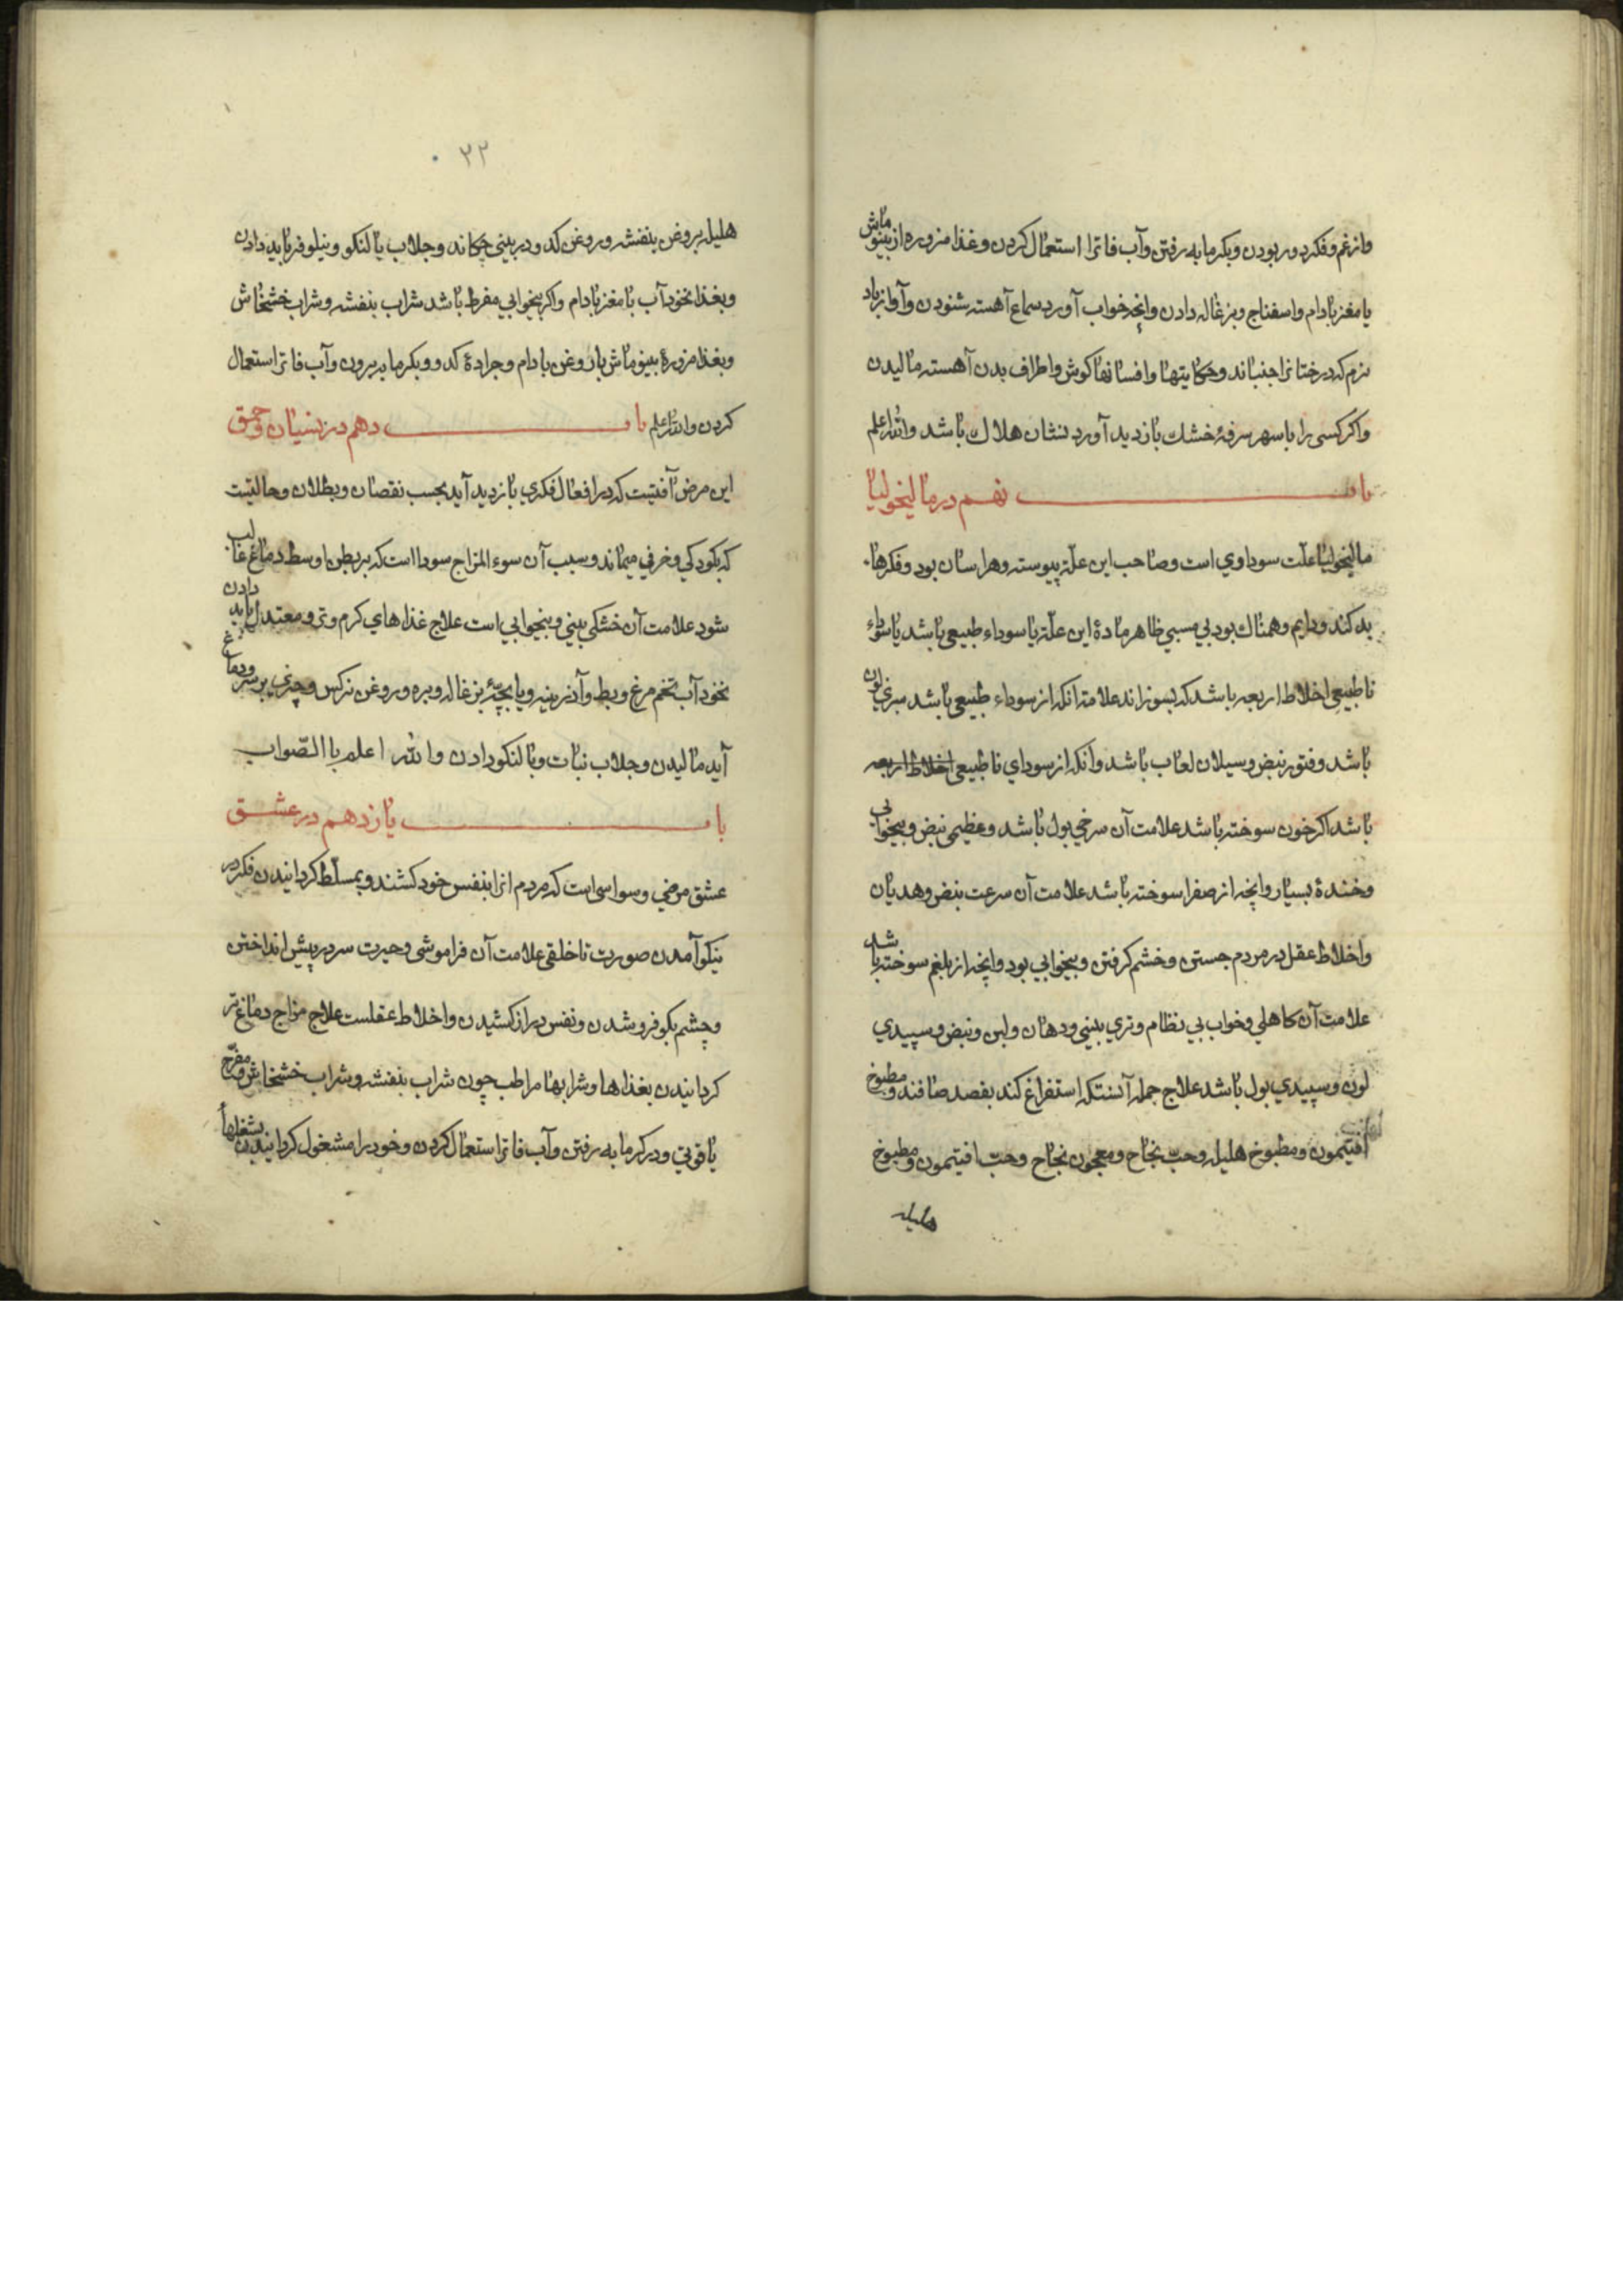 وازغم وفكر دور بودن وبكرمابه رفتن وآب فاترا استعمال كردن وغذا مزوره از بينو ماش
يا مغز بادام واسفناج وبزغاله دادن وانچه خواب آورد سماع آهسته شنودن وآواز باد
نرم كه درختانرا جنباند وحكايتها وافسانها كوش واطراف بدن آهسته ماليدن
واكر كسى را با سهر سرفهٔ خشك بازديد آورد نشان هلاك باشد والله اعلم
باب نهم در ماليخوليا
ماليخوليا علّت سوداوي است وصاحب اين علّة پيوسته وهراسان بود وفكرهاء
بد كند ودايم وهمناك بود بي مسببي ظاهر مادهٔ اين علّة يا سوداء طبيعى باشد يا سوداء
ناطبيعى اخلاط اربعه باشد كه بسوزاند علامة انكه از سوداء طبيعى باشد سبزي لون
باشد وفتور نبض وسيلان لعاب باشد وانكه از سوداي ناطبيعى اخلاط اربعه
باشد اكر خون سوخته باشد علامت آن سرخي بول باشد وعظيمى نبض وبيخوابي
وخندهٔ بسيار وانچه از صفرا سوخته باشد علامت آن سرعت نبض وهديان
واخلاط عقل در مردم جستن وخشم كرفتن وبيخوابي بود وانچه از بلغم سوخته باشد
علامت آن كاهلي وخواب بي نظام وتري بيني ودهان ولين ونبض وسپيدي
لون وسپيدي بول باشد علاج جمله آنستكه استفراغ كند بفصد صافند ومطبوخ
افتيمون ومطبوخ هليله وحبّ نجاح ومعجون نجاح وحبّ افتيمون ومطبوخ
هليله
٣٢
هليل بروغن بنفشه وروغن كدو در بينى چكاند وجلاب بالنكو ونيلوفر بايد دادن
وبغذا نخوداب با مغز بادام واكر بيخوابي مفرط باشد شراب بنفشه وشراب خشخاش
وبغذا مزورهٔ بينو ماش با روغن بادام وجرادهٔ كدو وبكرمابه برون وآب فاترا استعمال
كردن والله اعلم باب دهم در نسيان وحمق
اين مرض آفتيست كه در افعال فكري بازديد آيد بحسب نقصان وبطلان وحالتيست
كه بكودكي وخرفي ميماند وسبب آن سوء المزاج سودا است كه بر بطن اوسط دماغ غالب
شود علامت آن خشكى بيني وبيخوابي است علاج غذاهاي كرم وتر ومعتدل بايد دادن
نخوداب تخم مرغ وبط وآذرينه ويا بچّهٔ بزغاله وبره وروغن نركس وچيزي بر سر ودماغ
آيد ماليدن وجلاب نبات وبالنكو دادن والله اعلم باالصّواب
باب يازدهم در عشق
عشق مرضي وسواسى است كه مردم انرا بنفس خود كشند وبمسلّط كردانيدن فكر در
نيكو آمدن صورت تا خلقى علامت آن فراموشى وحيرت سر در پيش انداختن
وچشم بكو فرو شدن ونفس دراز كشيدن واخلاط عقلست علاج مزاج دماغ تر
كردانيدن بغذاها وشرابها مراطب چون شراب بنفشه وشراب خشخاش ومفرّح
ياقوتي ودر كرمابه رفتن وآب فاترا استعمال كردن وخود را مشغول كردانيدن بشغلها